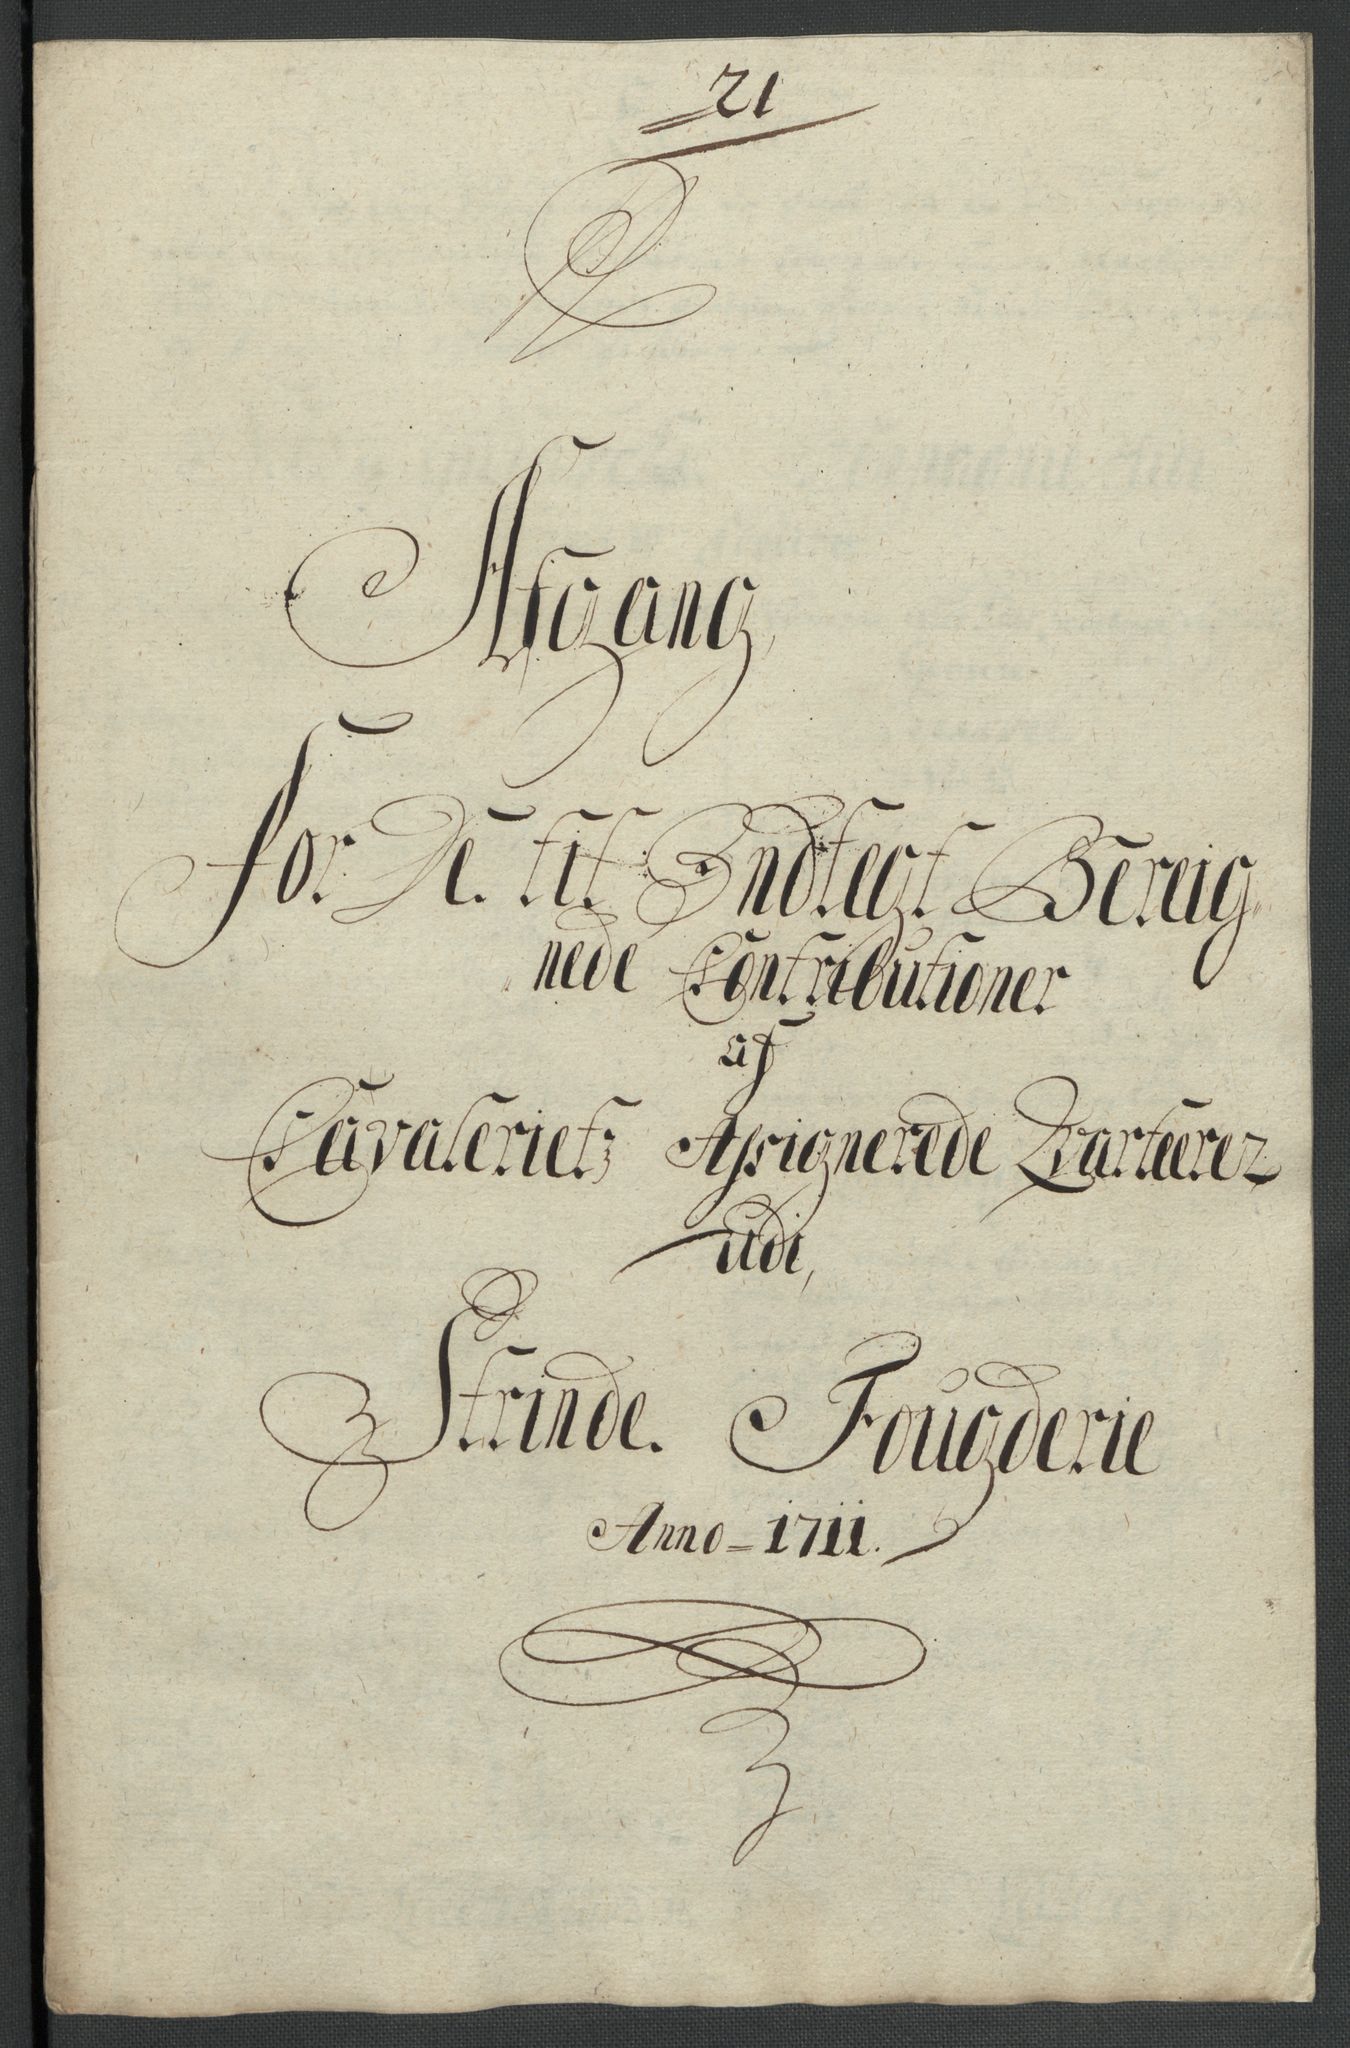 21
Afgang,
For De til Indtegt Bereig=
nede Contributioner
af
Cavaleriets Assignerede Qvarteerer
udi,
Strinde Fougderie
Anno = 1711.